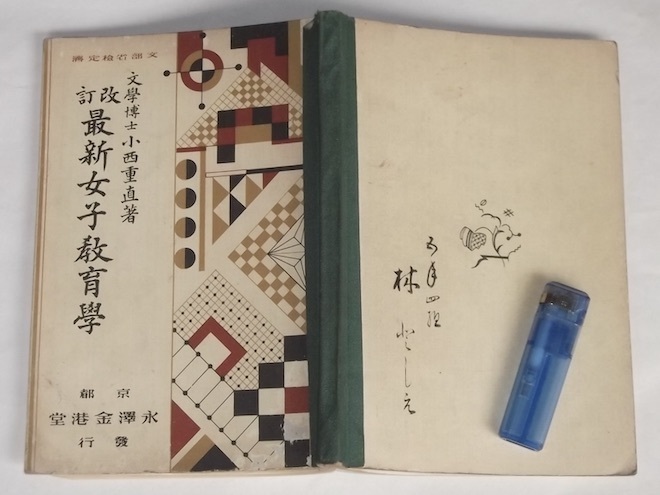 文部省檢定濟
文學博士小西重直著
改訂
最新女子教育學
京都
永澤金港堂
發行
五年四組
林としえ